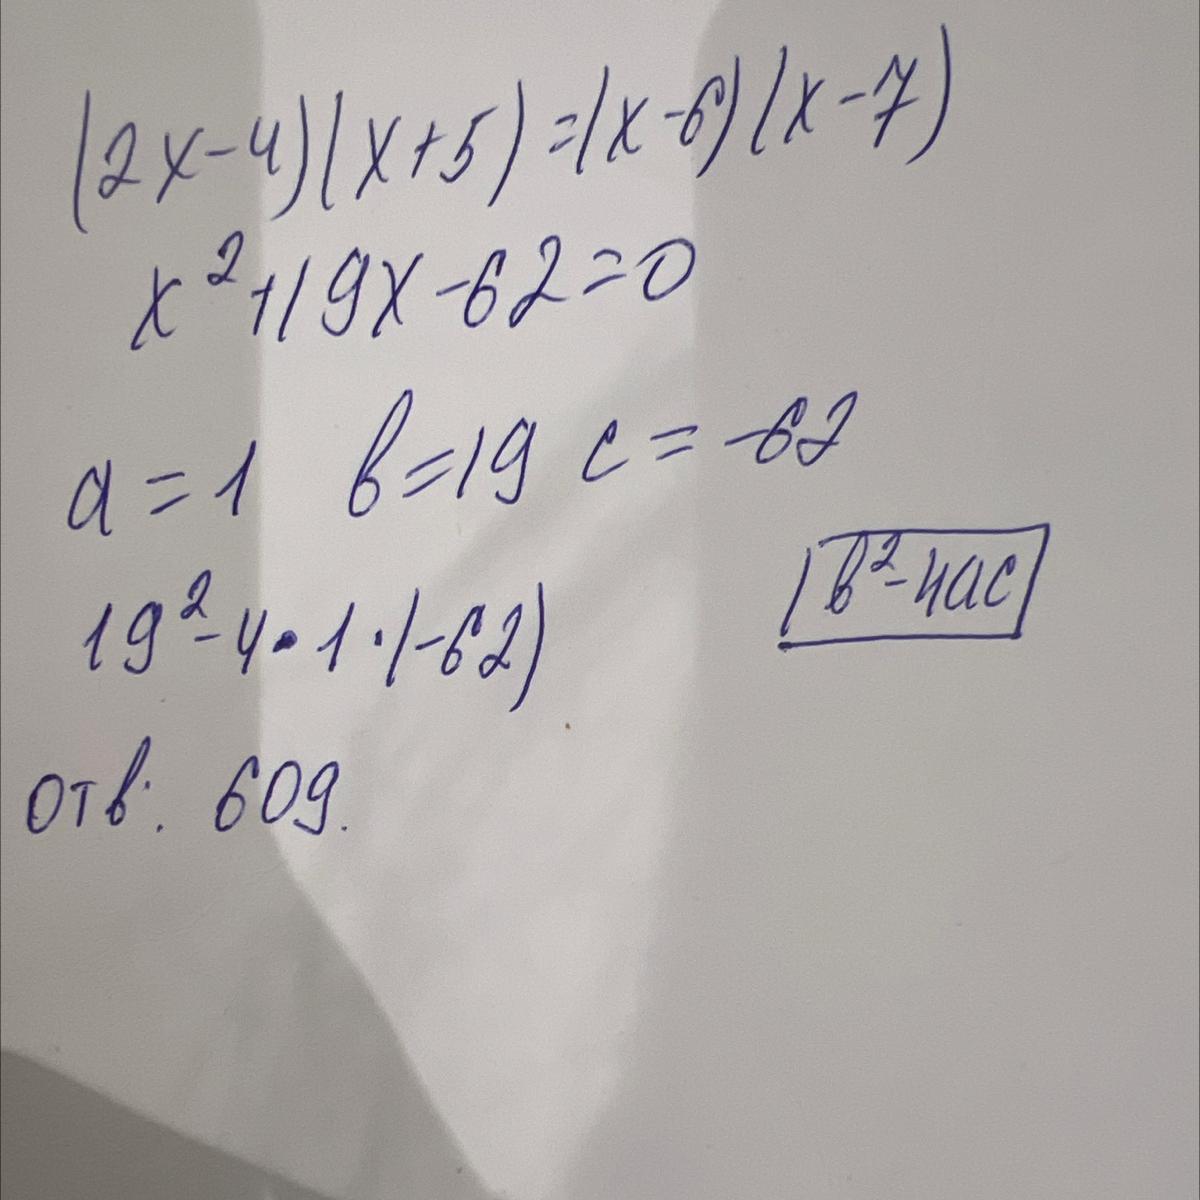 (2x-4)(x+5)=(x-6)(x-7)
x²+19x-62=0
a=1 b=19 c=-62
b²-4ac
19²-4•1·(-62)
отв: 609.